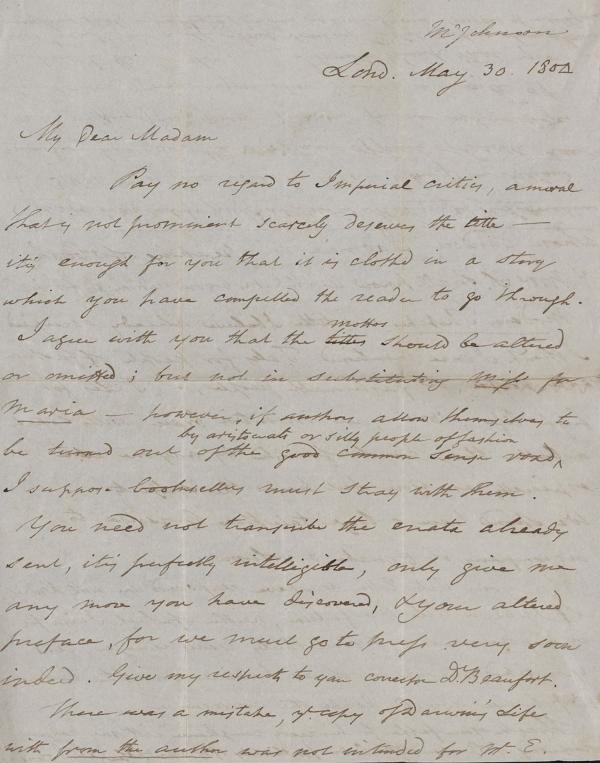 Mr Johnson
Lond. May 30. 1804
My Dear Madam
Pay no regard to Imperial critics, a moral
that is not prominent scarcely deserves the title —
itis enough for you that it is clothed in a story
which you have compelled the reader to go through.
mottos
I agree with you that the titles should be altered
or omitted; but not in substituting Miss for
Maria — however, if authors allow themselves to
by aristocrats or silly people of fashion
be turned out of the good common sense road,
I suppose booksellers must stray with them.
You need not transcribe the errata already
sent, itis perfectly intelligible, only give me
any more you have discovered, & your altered
preface, for we must go to press very soon
indeed. Give my respects to your corrector Dr. Beaufort.
There was a mistake, ye copy of Darwin's Life
with from the author was not intended for Mr. E.